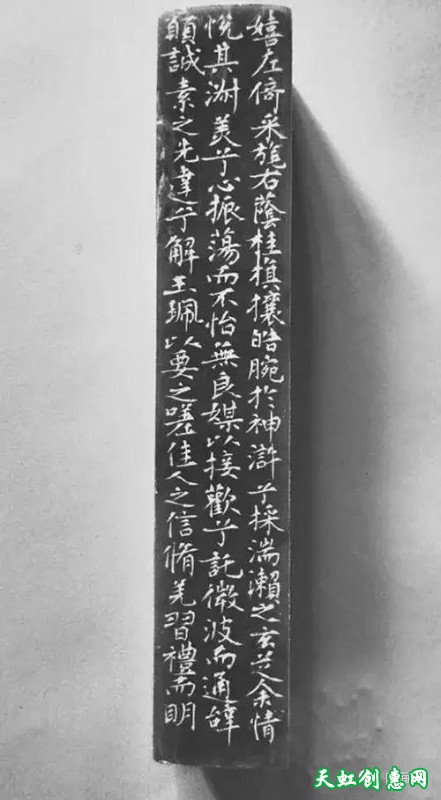 嬉左倚采旄右蔭桂旗攘皓腕於神滸兮採湍瀨之玄芝余情
悅其淑美兮心振蕩而不怡無良媒以接歡兮託微波而通辭
願誠素之先達兮解玉珮以要之嗟佳人之信脩羌習禮而明
天虹创意网